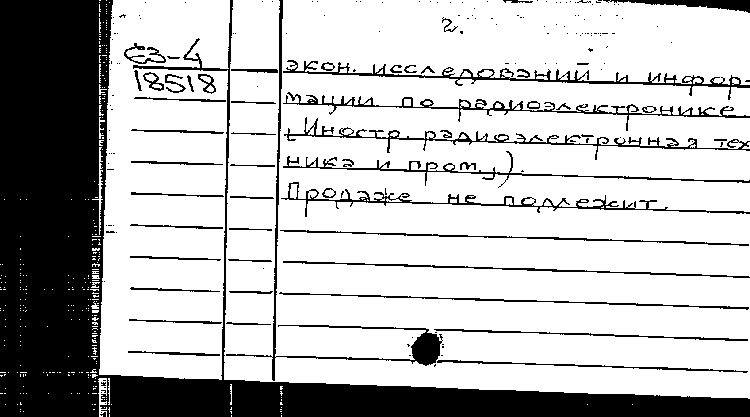 2.
С3-4
18518
экон. исследований и инфор-
мации по радиоэлектронике.
[Иностр. радиоэлектронная тех
ника и пром.]).
Продаже не подлежит.